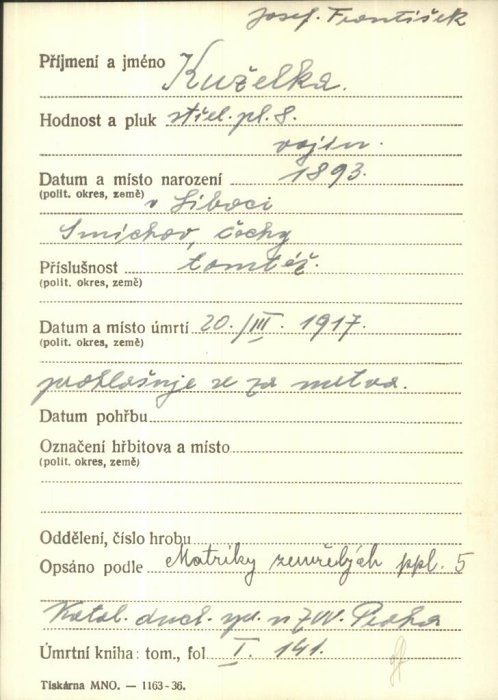 Josef. František
Příjmení a jméno Kuželka.
Hodnost a pluk střel. pl. 8.
vojín.
Datum a místo narození 1893.
(polit. okres, země) v Liboci
Smíchov, Čechy
Příslušnost tamtéž.
(polit. okres, země)
Datum a místo úmrtí 20./III. 1917.
(polit. okres, země)
prohlašuje se za mrtva.
Datum pohřbu
Označení hřbitova a místo
(polit. okres, země)
Oddělení, číslo hrobu
Opsáno podle Matriky zemřelých ppl. 5
Katol. duch. Praha
Úmrtní kniha: tom., fol. I. 141.
Tiskárna MNO. — 1163-36.